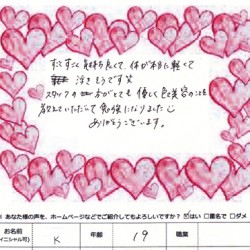 すごすごく気持ち良くて、体が本当に軽くて
浮きそうです
スタッフの 方がとても優しく色々美容のことを
教えていただいて勉強になりました
ありがとうございます。
※ あなた様の声を、ホームページなどでご紹介してもよろしいですか? はい □匿名で □ダメ
お名前 K 年齢 19 職業
イニシャル可)